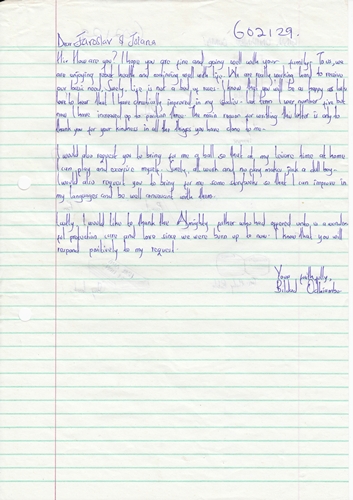 602129.
Dear Jaroslav & Jolana
Hi. How are you? I hope you are fine and going well with your family. To us, we
are enjoying robust health and continuing well with life. We are really working hard to receive
our basic need. Surely, life is not a bed of roses. I know that you will be as happy as lark
to hear that I have drastically improved in my studies. Last term I was number five but
now I have managed up to position three. The main reason for writing this letter is only to
thank you for your kindness in all the things you have done to me.
I would also request you to bring for me a ball so that at my leisure time at home
I can play and exercise myself. Surely, all work and no play makes jack a dull boy.
I would also request you to bring for me some storybooks so that I can improve in
my languages and be well conversant with them.
Lastly, I would like to thank the Almighty father who had opened unto us a wonder-
ful protection, care and love since we were born up to now. I know that you will
respond positively to my request.
Yours faithfully,
Bildad